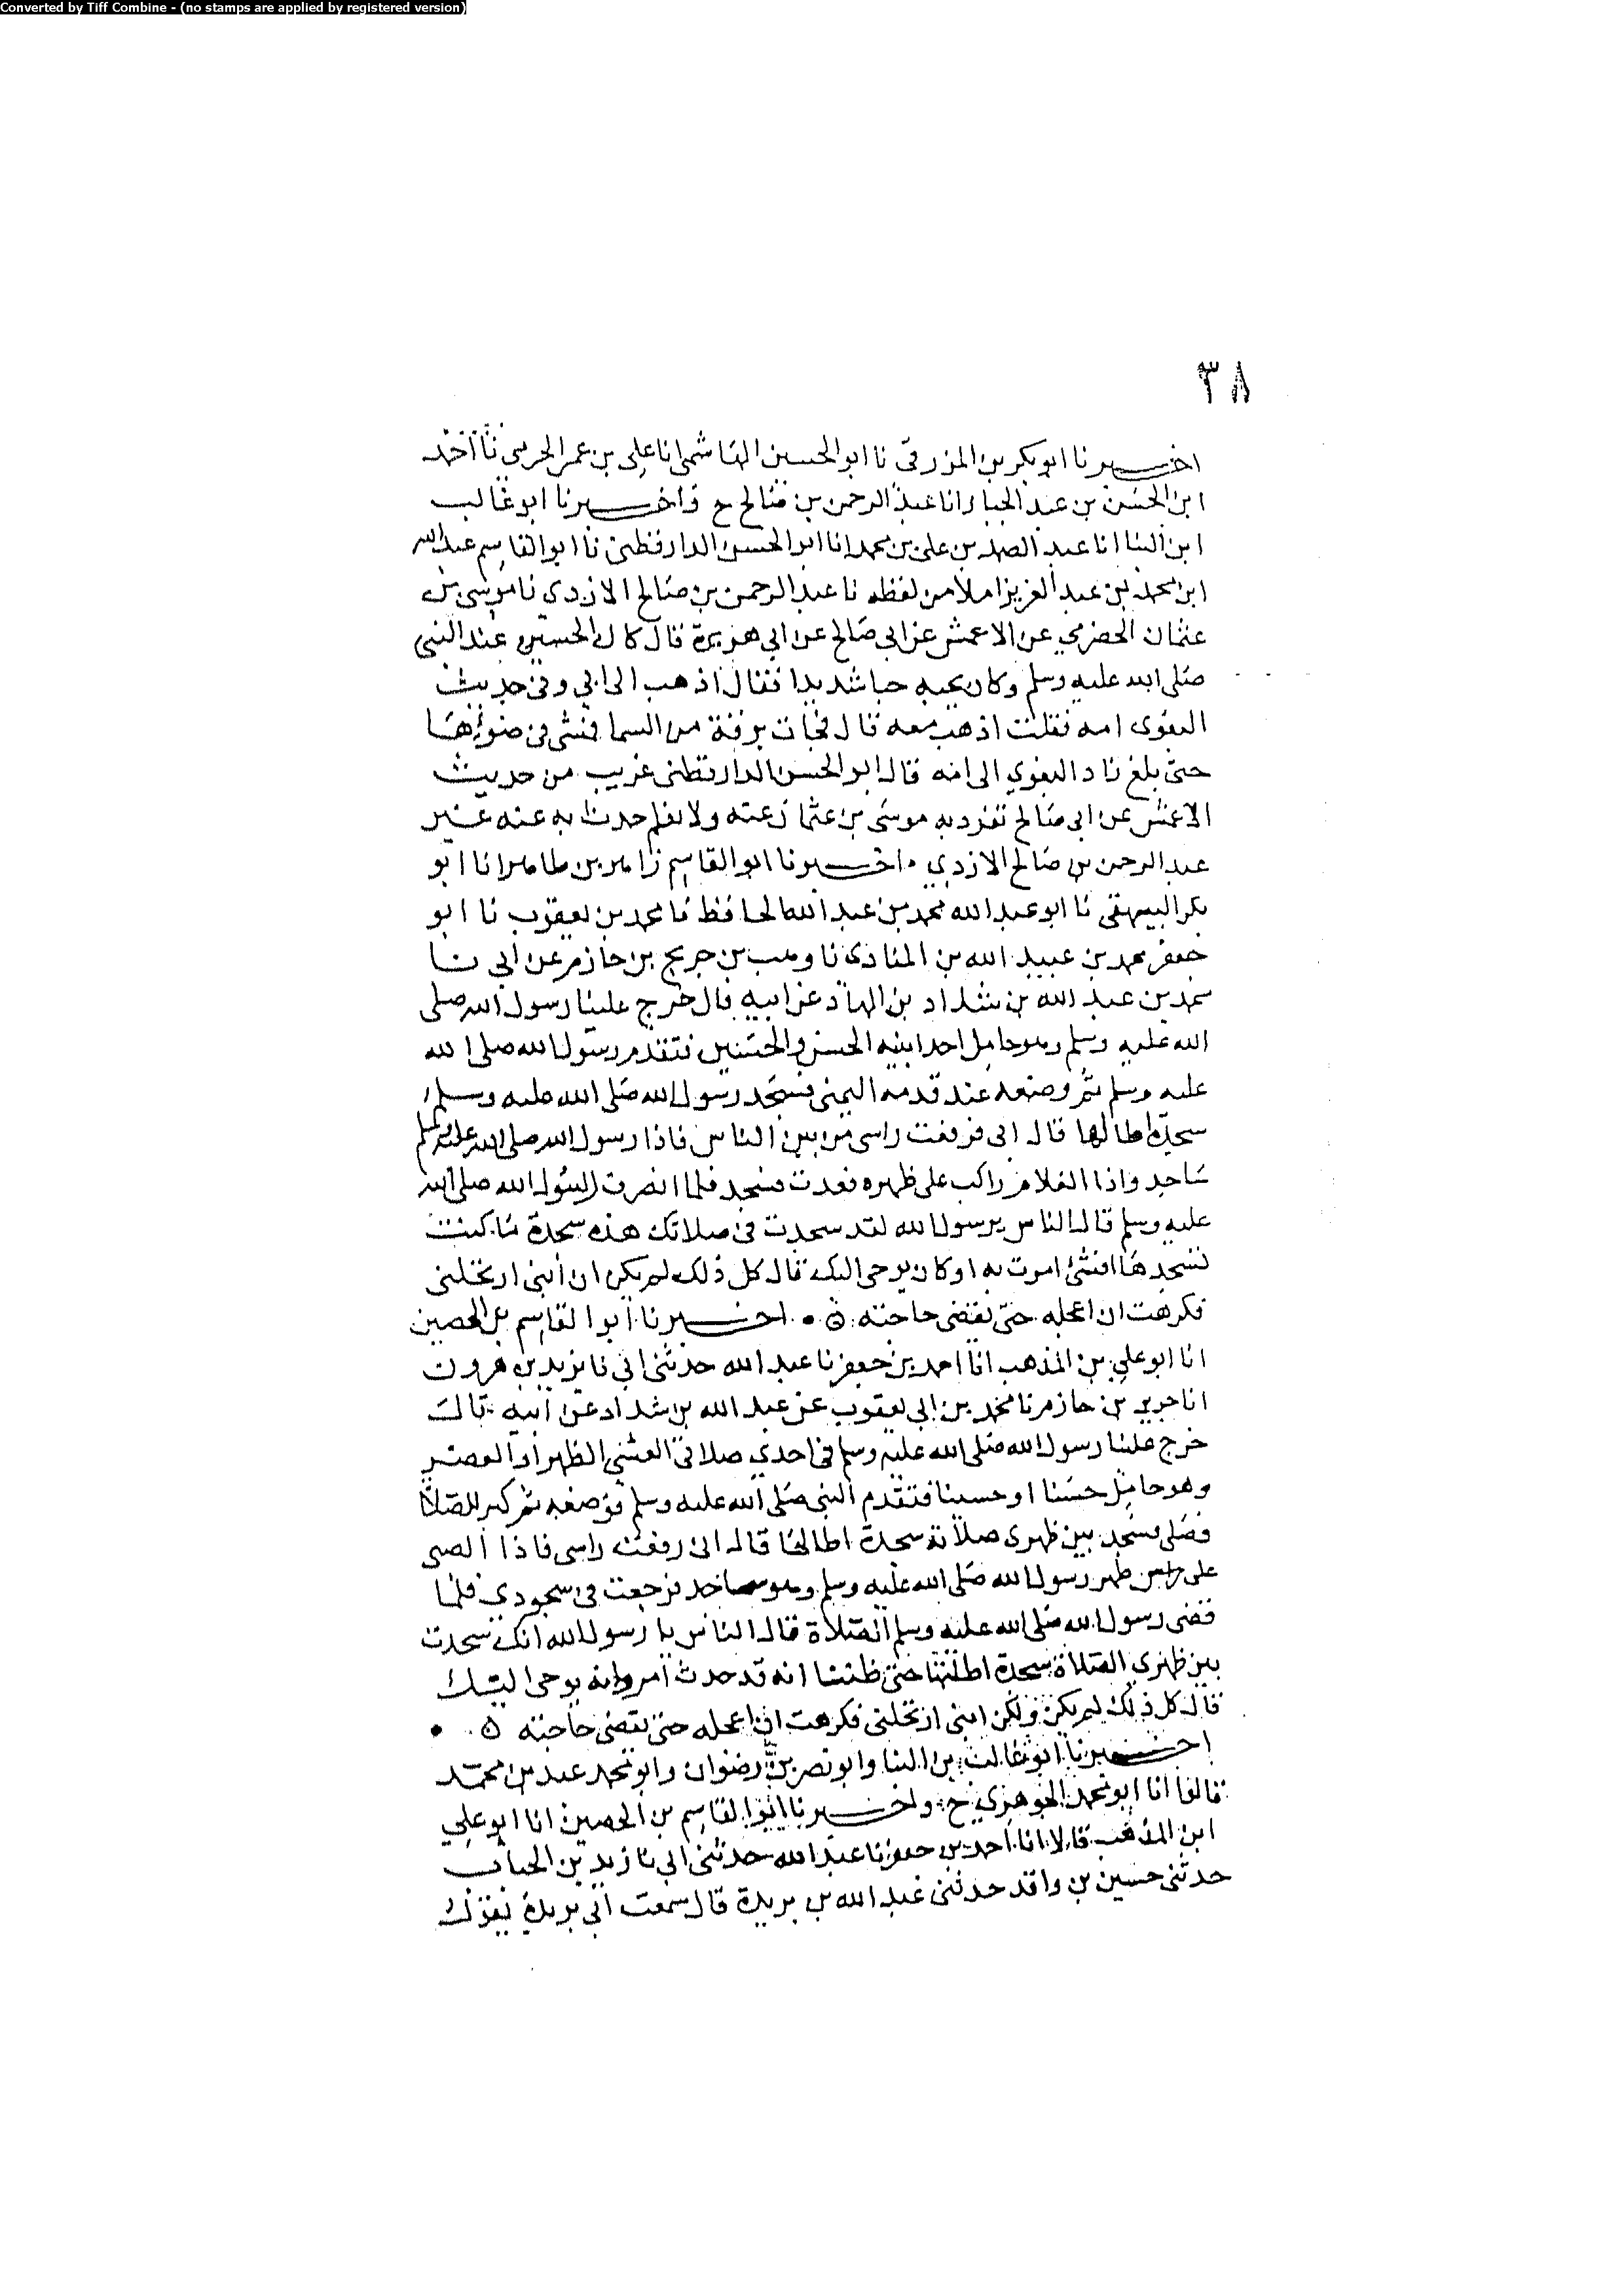 Converted by Tiff Combine - (no stamps are applied by registered version)
٣٨
اخبرنا ابو بكر بن المزرقى نا ابو الحسين الهاشمى انا على بن عمر الحربى نا احمد
ابن الحسن بن عبد الجبار انا عبد الرحمن بن صالح ح واخبرنا ابو غالب
ابن البنا انا عبد الصمد بن على بن محمد انا ابو الحسن الدارقطنى نا ابو القاسم عبد الله
ابن محمد بن عبد العزيز املا من لفظه نا عبد الرحمن بن صالح الازدى نا موسى بن
عثمان الحضرمي عن الاعمش عن ابى صالح عن ابي هريرة قال كان الحسين عند النبى
صلى الله عليه وسلم وكان يحبه حبا شديدا فقال اذهب الى ابي وفى حديث
البغوى امه فقلت اذهب معه قال فجات برقة من السما فمشى فى ضوئها
حتى بلغ زاد البغوي الى امه قال ابو الحسن الدارقطنى غريب من حديث
الاعمش عن ابى صالح تفرد به موسى بن عثمان عنه ولا نعلم حدث به عنه غير
عبد الرحمن بن صالح الازدي اخبرنا ابو القاسم زاهر بن طاهر انا ابو
بكر البيهقى نا ابو عبد الله محمد بن عبد الله الحافظ نا محمد بن يعقوب نا ابو
جعفر محمد بن عبيد الله بن المنادى نا وهب بن جريج بن حازم عن ابي نا
محمد بن عبد الله بن شداد بن الهاد عن ابيه قال خرج علينا رسول الله صلى
الله عليه وسلم وهو حامل احد ابنيه الحسن والحسين فتقدم رسول الله صلى الله
عليه وسلم ثم وضعه عند قدمه اليمنى فسجد رسول الله صلى الله عليه وسلم
سجدة اطالها قال ابى فرفعت راسى من بين الناس فاذا رسول الله صلى الله عليه وسلم
ساجد واذا الغلام راكب على ظهره فعدت فسجد فلما انصرف رسول الله صلى الله
عليه وسلم قال الناس يرسول الله لقد سجدت فى صلاتك هذه سجدة ما كنت
تسجدها افشئ امرت به او كان يوحى اليك قال كل ذلك لم يكن ان ابنى ارتحلنى
فكرهت ان اعجله حتى يقضى حاجته ه اخبرنا ابو القاسم بن الحصين
انا ابو على بن المذهب انا احمد بن جعفر نا عبد الله حدثنى ابي نا يزيد بن هرون
انا جرير بن حازم نا محمد بن ابي يعقوب عن عبد الله بن شداد عن ابيه قال
خرج علينا رسول الله صلى الله عليه وسلم فى احدي صلاتى العشى الظهر او العصر
وهو حامل حسنا او حسينا فتقدم النبى صلى الله عليه وسلم فوضعه ثم كبر للصلاة
فصلى فسجد بين ظهرى صلاته سجدة اطالها قال انى رفعت راسى فاذا الصبى
على ظهر رسول الله صلى الله عليه وسلم وهو ساجد فرجعت فى سجودى فلما
قضى رسول الله صلى الله عليه وسلم الصلاة قال الناس يا رسول الله انك سجدت
بين ظهري الصلاة سجدة اطلتها حتى ظننا انه قد حدث امر وانه يوحى اليك
قال كل ذلك لم يكن ولكن ابنى ارتحلنى فكرهت ان اعجله حتى يقضى حاجته ه
اخبرنا ابو غالب بن البنا وابو نصر بن رضوان وابو محمد عبد بن محمد
قالوا انا ابو محمد الجوهري ح واخبرنا ابو القاسم بن الحصين انا ابو علي
ابن المذهب قالا انا احمد بن جعفر نا عبد الله حدثنى ابي نا زيد بن الحباب
حدثنى حسين بن واقد حدثنى عبد الله بن بريدة قال سمعت ابي بريدة يقول